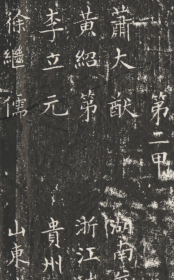 第二甲
蕭大猷 湖南
黄紹第 浙江
李立元 貴州
徐繼儒 山東